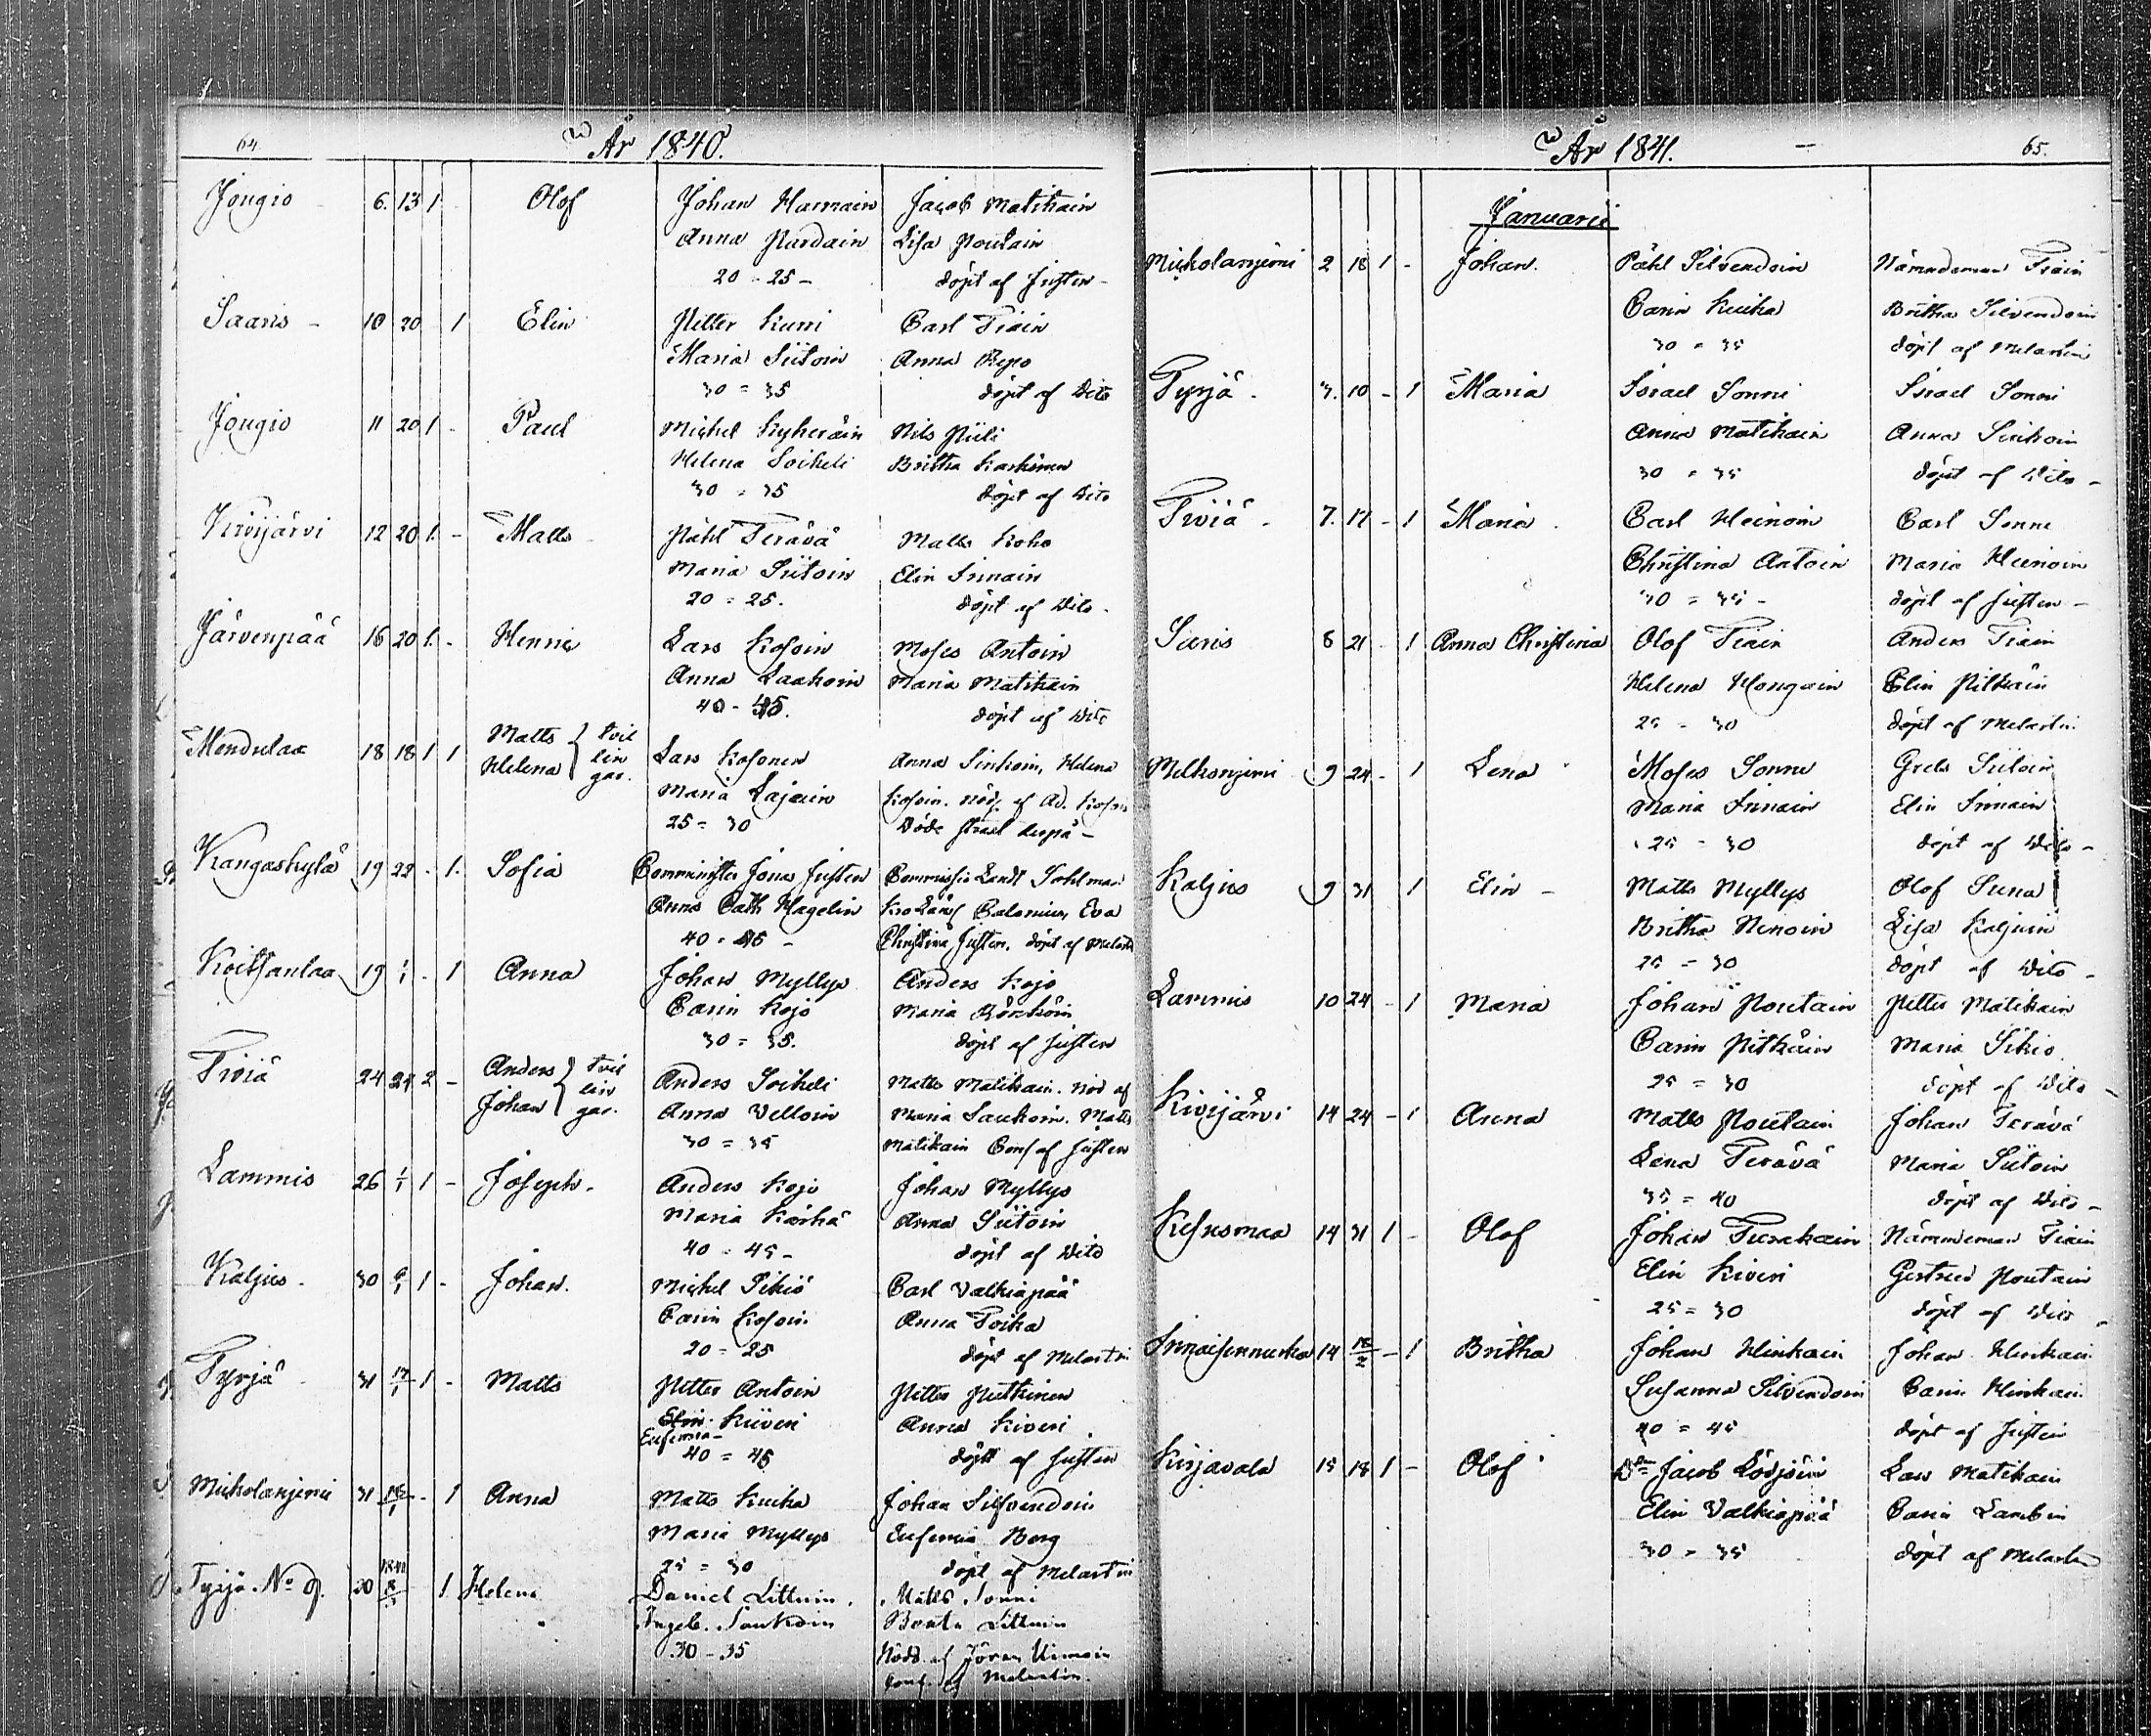 64.
År 1840.
Jongio - 6. 13 1 - Olof Johan Harmain Jacob Matikain
Anna Pardain Lisa Poutain
20 = 25 - döpt af Justen -
Saaris - 10 20 1 Elin Petter Kurri Carl Tiain
Maria Siitoin Anna Repo
30 = 35 döpt af Dito
Jongio 11 20 1 - Paul Michel Kyheräin Nils Piili
Helena Soikeli Britha Karhinen
30 = 35 döpt af Dito
Kivijärvi 12 20 1. - Matts Påhl Terävä Matts Koho
Maria Siitoin Elin Innain
20 = 25. döpt af Dito -
Järvenpää 16 20 1. - Henric Lars Kosoin Moses Antoin
Anna Laakoin Maria Matikain
40 - 45. döpt af Dito
Mendulax 18 18 1 1 Matts Helena tvil lin gar. Lars Kosonen Anna Sinkoin, Helena
Maria Lajuin Kosoin. nöd. af Ad. Kosoin
25 = 30 Döde strax derpå -
Kangaskylä 19 22 - 1. Sofia Comminister Jonas Justen Commissie Landt Sohlman
Anna Cath Hagelin Kro Länsf Calonius, Eva
40 = 45 - Christina Justen. döpt af Melart
Koitsanlax 19 1/1 - 1 Anna Johan Myllys Anders Kojo
Carin Kojo Maria Rönköin
30 = 35. döpt af Justen
Tiviä 24 24 2 - Anders Johan tvil lin gar. Anders Soikeli Matts Matikain. nöd af
Anna Velloin Maria Saukoin. Matts
30 = 35 Matikain Conf af Justen
Lammis 26 1/1 1 - Joseph. Anders Kojo Johan Myllys
Maria Kärhä Anna Siitoin
40 = 45 - döpt af Dito
Kaljus. 30 6/1 1 - Johan. Michel Sikiö Carl Valkiapää
Carin Kosoin Anna Toika
20 = 25 döpt af Melartin
Tyrjä 31 17/1 1 - Matts Petter Antoin Petter Putkinen
Elin Kiiveri Anna Kiveri
Eufemia -
40 = 45 döpt af Justen
Mickolanjemi 31 18/1 - 1 Anna Matts Kuika Johan Silfvendoin
Maria Myllys Eufemia Berg
25 = 30 döpt af Melartin
Tyrjä No 9. 20 1 Helena Daniel Littuin Matts Sonni
Ingeb. Saukoin Beata Littuin
30 - 35 Nöd. af Jöran
Conf. af Melartin.
År 1841. - 65.
Januarii
Mickolanjemi 2 18 1 - Johan. Påhl Silvendoin Nämndeman Tiain
Carin Kuika Britha Silvendoin
30 = 35 döpt af Melartin
Tyrjä - 3. 10 - 1 Maria Israel Sonni Israel Sonni
Anna Matikain Anna Sinkoin
30 = 35 döpt af Dito -
Tiviä - 7. 17 - 1 Maria Carl Heinoin Carl Sonni
Christina Antoin Maria Heinoin
30 = 35 - döpt af Justen -
Saris 8 21 - 1 Anna Christina Olof Tiain Anders Tiain
Helena Hongain Elin Pitkäin
25 = 30 döpt af Melartin
Melkonjemi 9 24 - 1 Lena Moses Sonni Greta Siitoin
Maria Innain Elin Innain
25 = 30 döpt af Dito -
Kaljus 9 31 1 Elin - Matts Myllys Olof Suna
Britha Nenoin Lisa Kaljuin
25 = 30 döpt af Dito -
Lammis 10 24 - 1 Maria Johan Poutain Petter Matikain
Carin Pitkäin Maria Sikio
25 = 30 döpt af Dito -
Kivijärvi 14 24 - 1 Anna Matts Poutain Johan Terävä
Lena Terävä Maria Siitoin
35 = 40 döpt af Dito -
Kesusmaa 14 31 1 - Olof Johan Turakain Nämndeman Tiain
Elin Kiveri Gertrud Poutain
25 = 30 döpt af Dito -
14 18/2 - 1 Britha Johan Hinkain Johan Hinkain
Susanna Silvendoin Carin Hinkain
40 = 45 döpt af Justen
Kirjavala 15 18 1 - Olof Jacob Lörjöin Lars Matikain
Elin Valkiapää Carin Lambin
30 = 35 döpt af Melartin